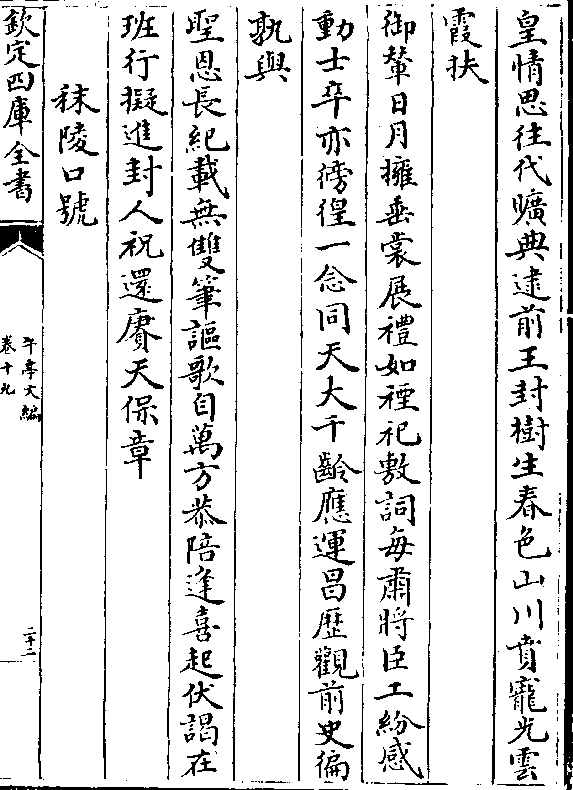 皇情思往代曠典逮前王封樹生春色山川賁寵光雲
霞扶
御輦日月擁垂裳展禮如禋祀敷詞每肅將臣工紛感
動士卒亦徬徨一念同天大千齡應運昌歷觀前史徧
孰與
聖恩長紀載無雙筆謳歌自萬方恭陪逢喜起伏謁在
班行擬進封人祝還賡天保章
秣陵口號
欽定四庫全書
午亭文編
卷十九
二十二